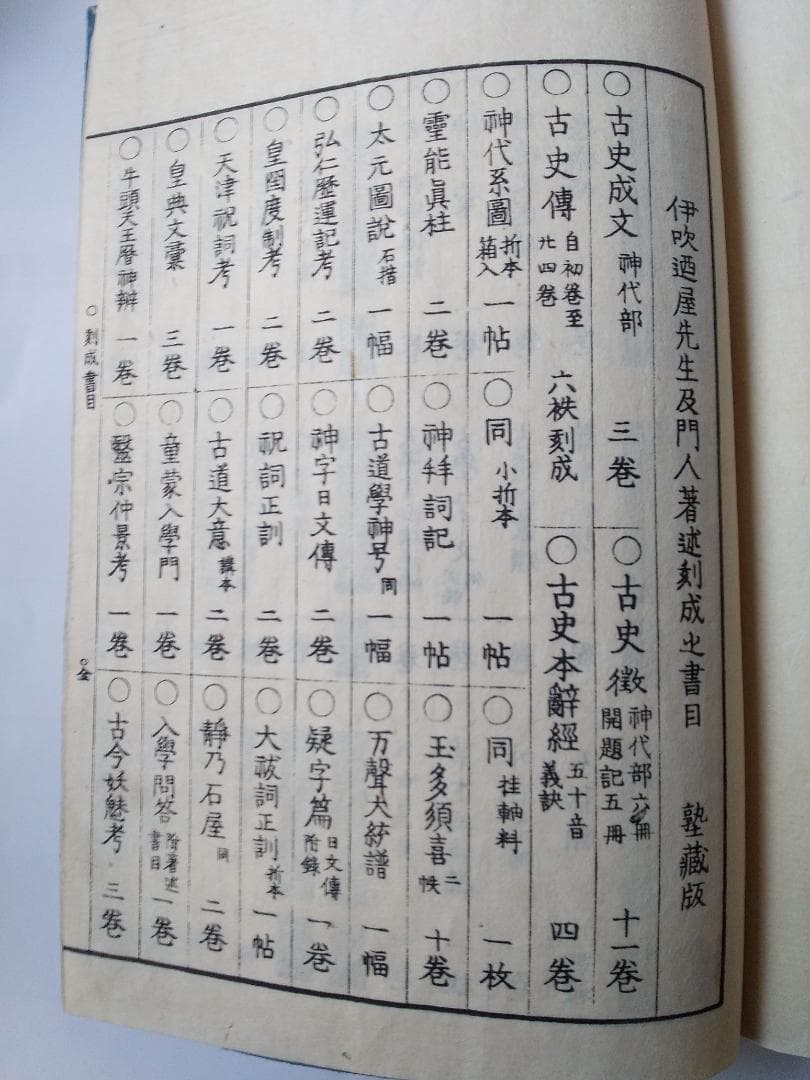 伊吹迺屋先生及門人著述刻成之書目 塾藏版
○古史成文 神代部 三卷 ○古史徵 神代部六冊 開題記五冊 十一卷
○古史傳 自初卷至 廿四卷 六袟刻成 ○古史本辭經 五十音 義訣 四卷
○神代系圖 折本 箱入 一帖 ○同 小折本 一帖 ○同 挂軸料 一枚
○靈能眞柱 二卷 ○神拜詞記 一帖 ○玉多須喜 二帙 十卷
○太元圖說 石摺 一幅 ○古道學神号 同 一幅 ○万聲大統譜 一幅
○弘仁歷運記考 二卷 ○神字日文傳 二卷 ○疑字篇 日文傳 附錄 一卷
○皇國度制考 二卷 ○祝詞正訓 二卷 ○大祓詞正訓 折本 一帖
○天津祝詞考 一卷 ○古道大意 講本 二卷 ○靜乃石屋 同 二卷
○皇典文彙 三卷 ○童蒙入學門 一卷 ○入學問答 附著述 書目 一卷
○牛頭天王曆神辨 一卷 ○醫宗仲景考 一卷 ○古今妖魅考 三卷
○刻成書目 ○全